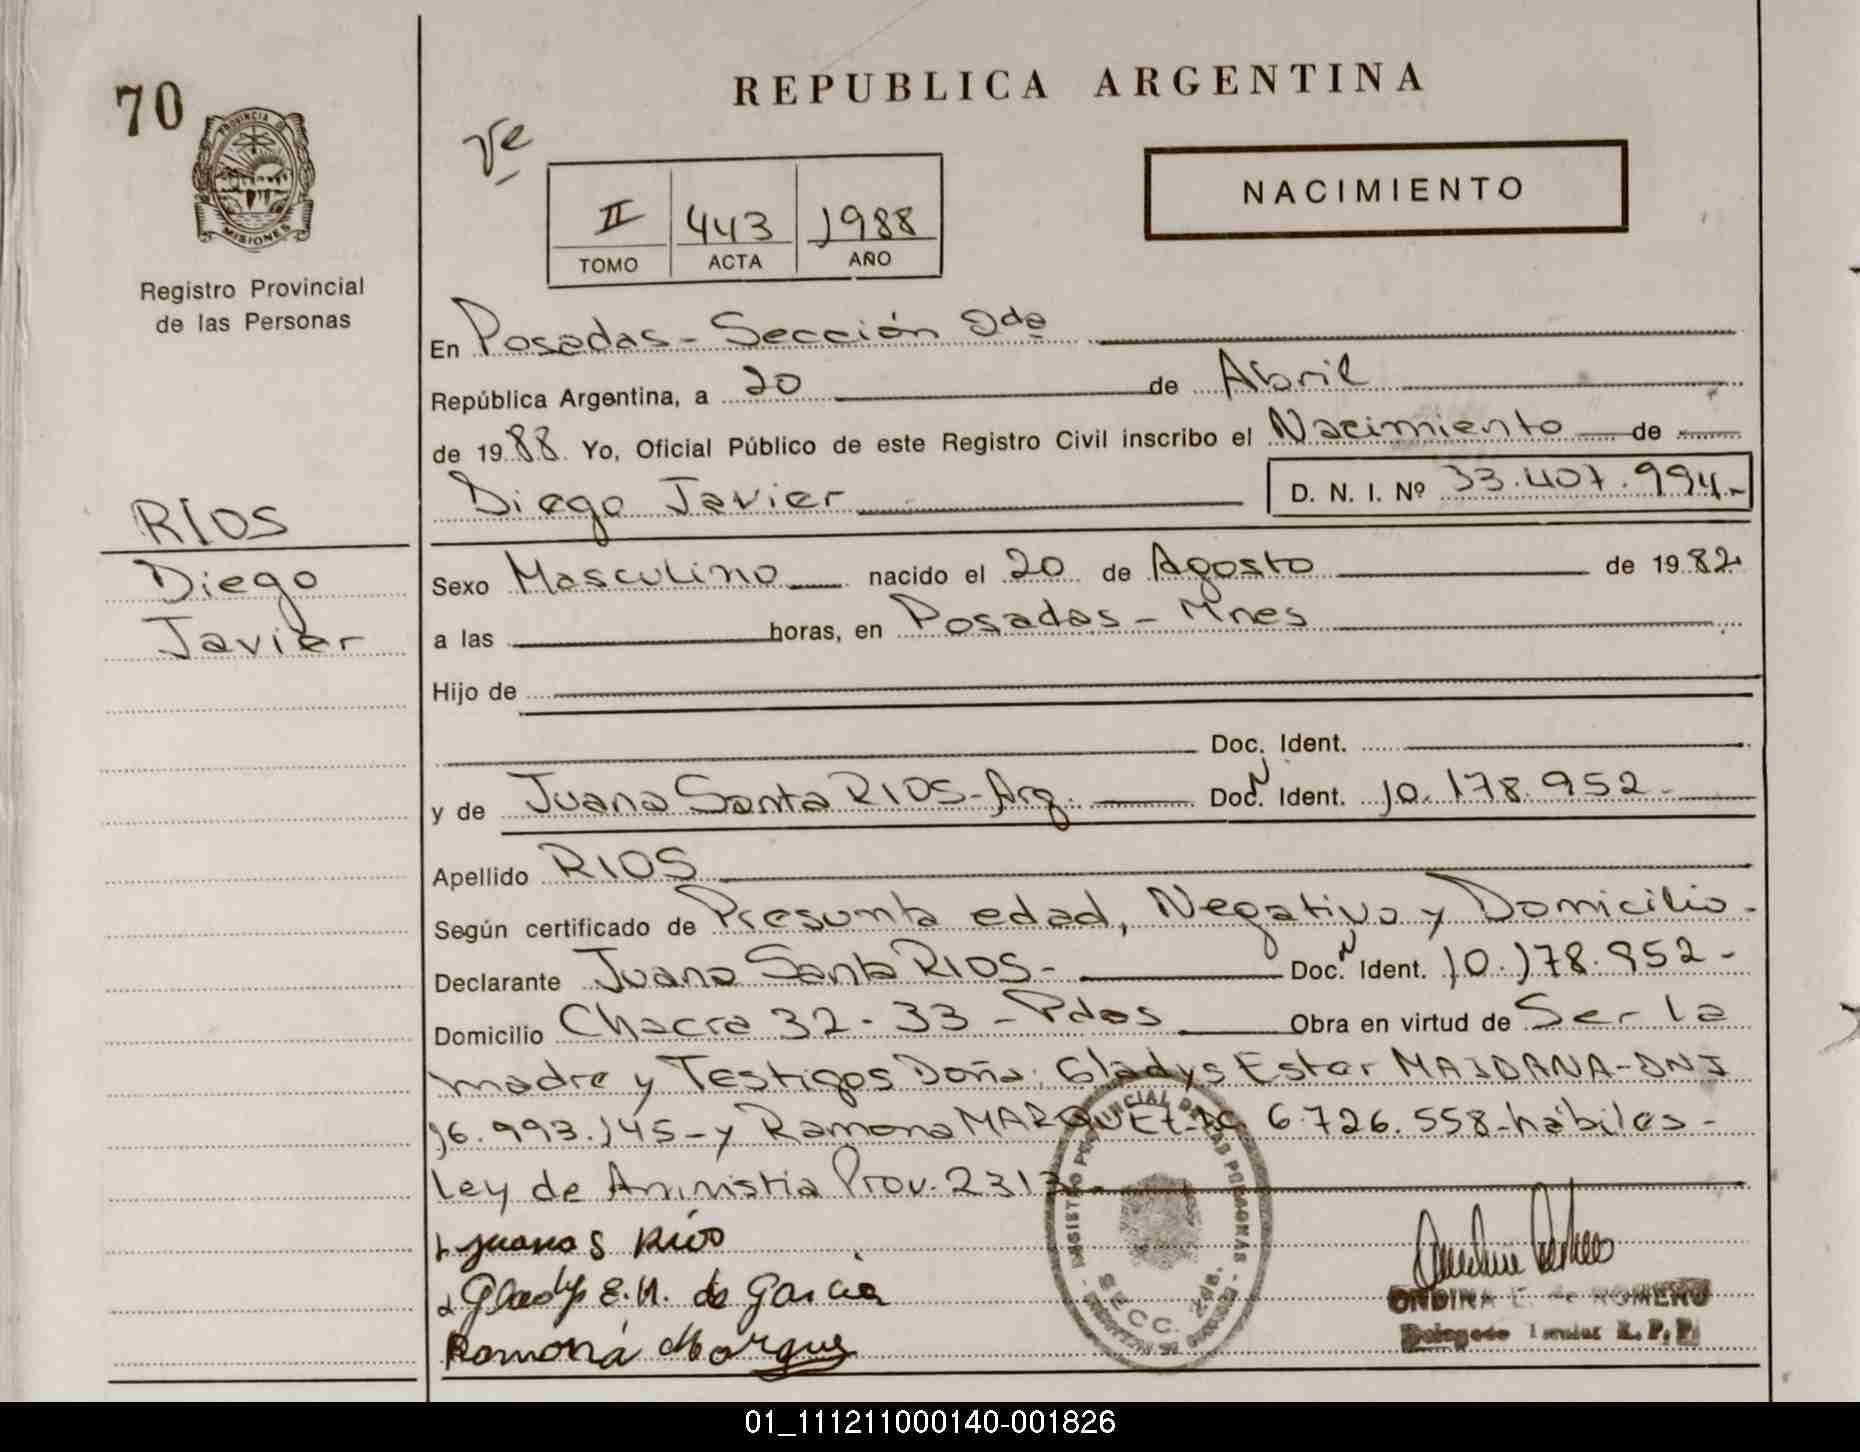 70
REPUBLICA ARGENTINA
PROVINCIA DE
MISIONES
Registro Provincial
de las Personas
NACIMIENTO
II 443 1988
TOMO ACTA AÑO
En Posadas - Sección 2da
República Argentina, a 20 de Abril
de 1988. Yo, Oficial Público de este Registro Civil inscribo el Nacimiento de
Diego Javier D. N. I. Nº 33.407.994.-
RÍOS
Diego
Javier
Sexo Masculino nacido el 20 de Agosto de 1982
a las horas, en Posadas - Mnes
Hijo de
Doc. Ident.
y de Juana Santa RIOS - Arg. Doc. Ident. 10.178.952 -
Apellido RIOS
Según certificado de Presunta edad, Negativo y Domicilio -
Declarante Juana Santa RIOS - Doc. Ident. 10.178.952 -
Domicilio Chacra 32 - 33 - Pdas Obra en virtud de Ser la
madre y Testigos Doña: Gladys Ester MAIDANA - DNI
16.993.145 - y Ramona MARQUEZ 6.726.558 - hábiles -
Ley de Aminstia Prov. 2313 -
Juana S Rios
Gladys E. M. de Garcia
Ramona Marquez
SECC. 2da.
ONDINA E. de ROMERO
Delegado Titular R. P. P.
01_111211000140-001826